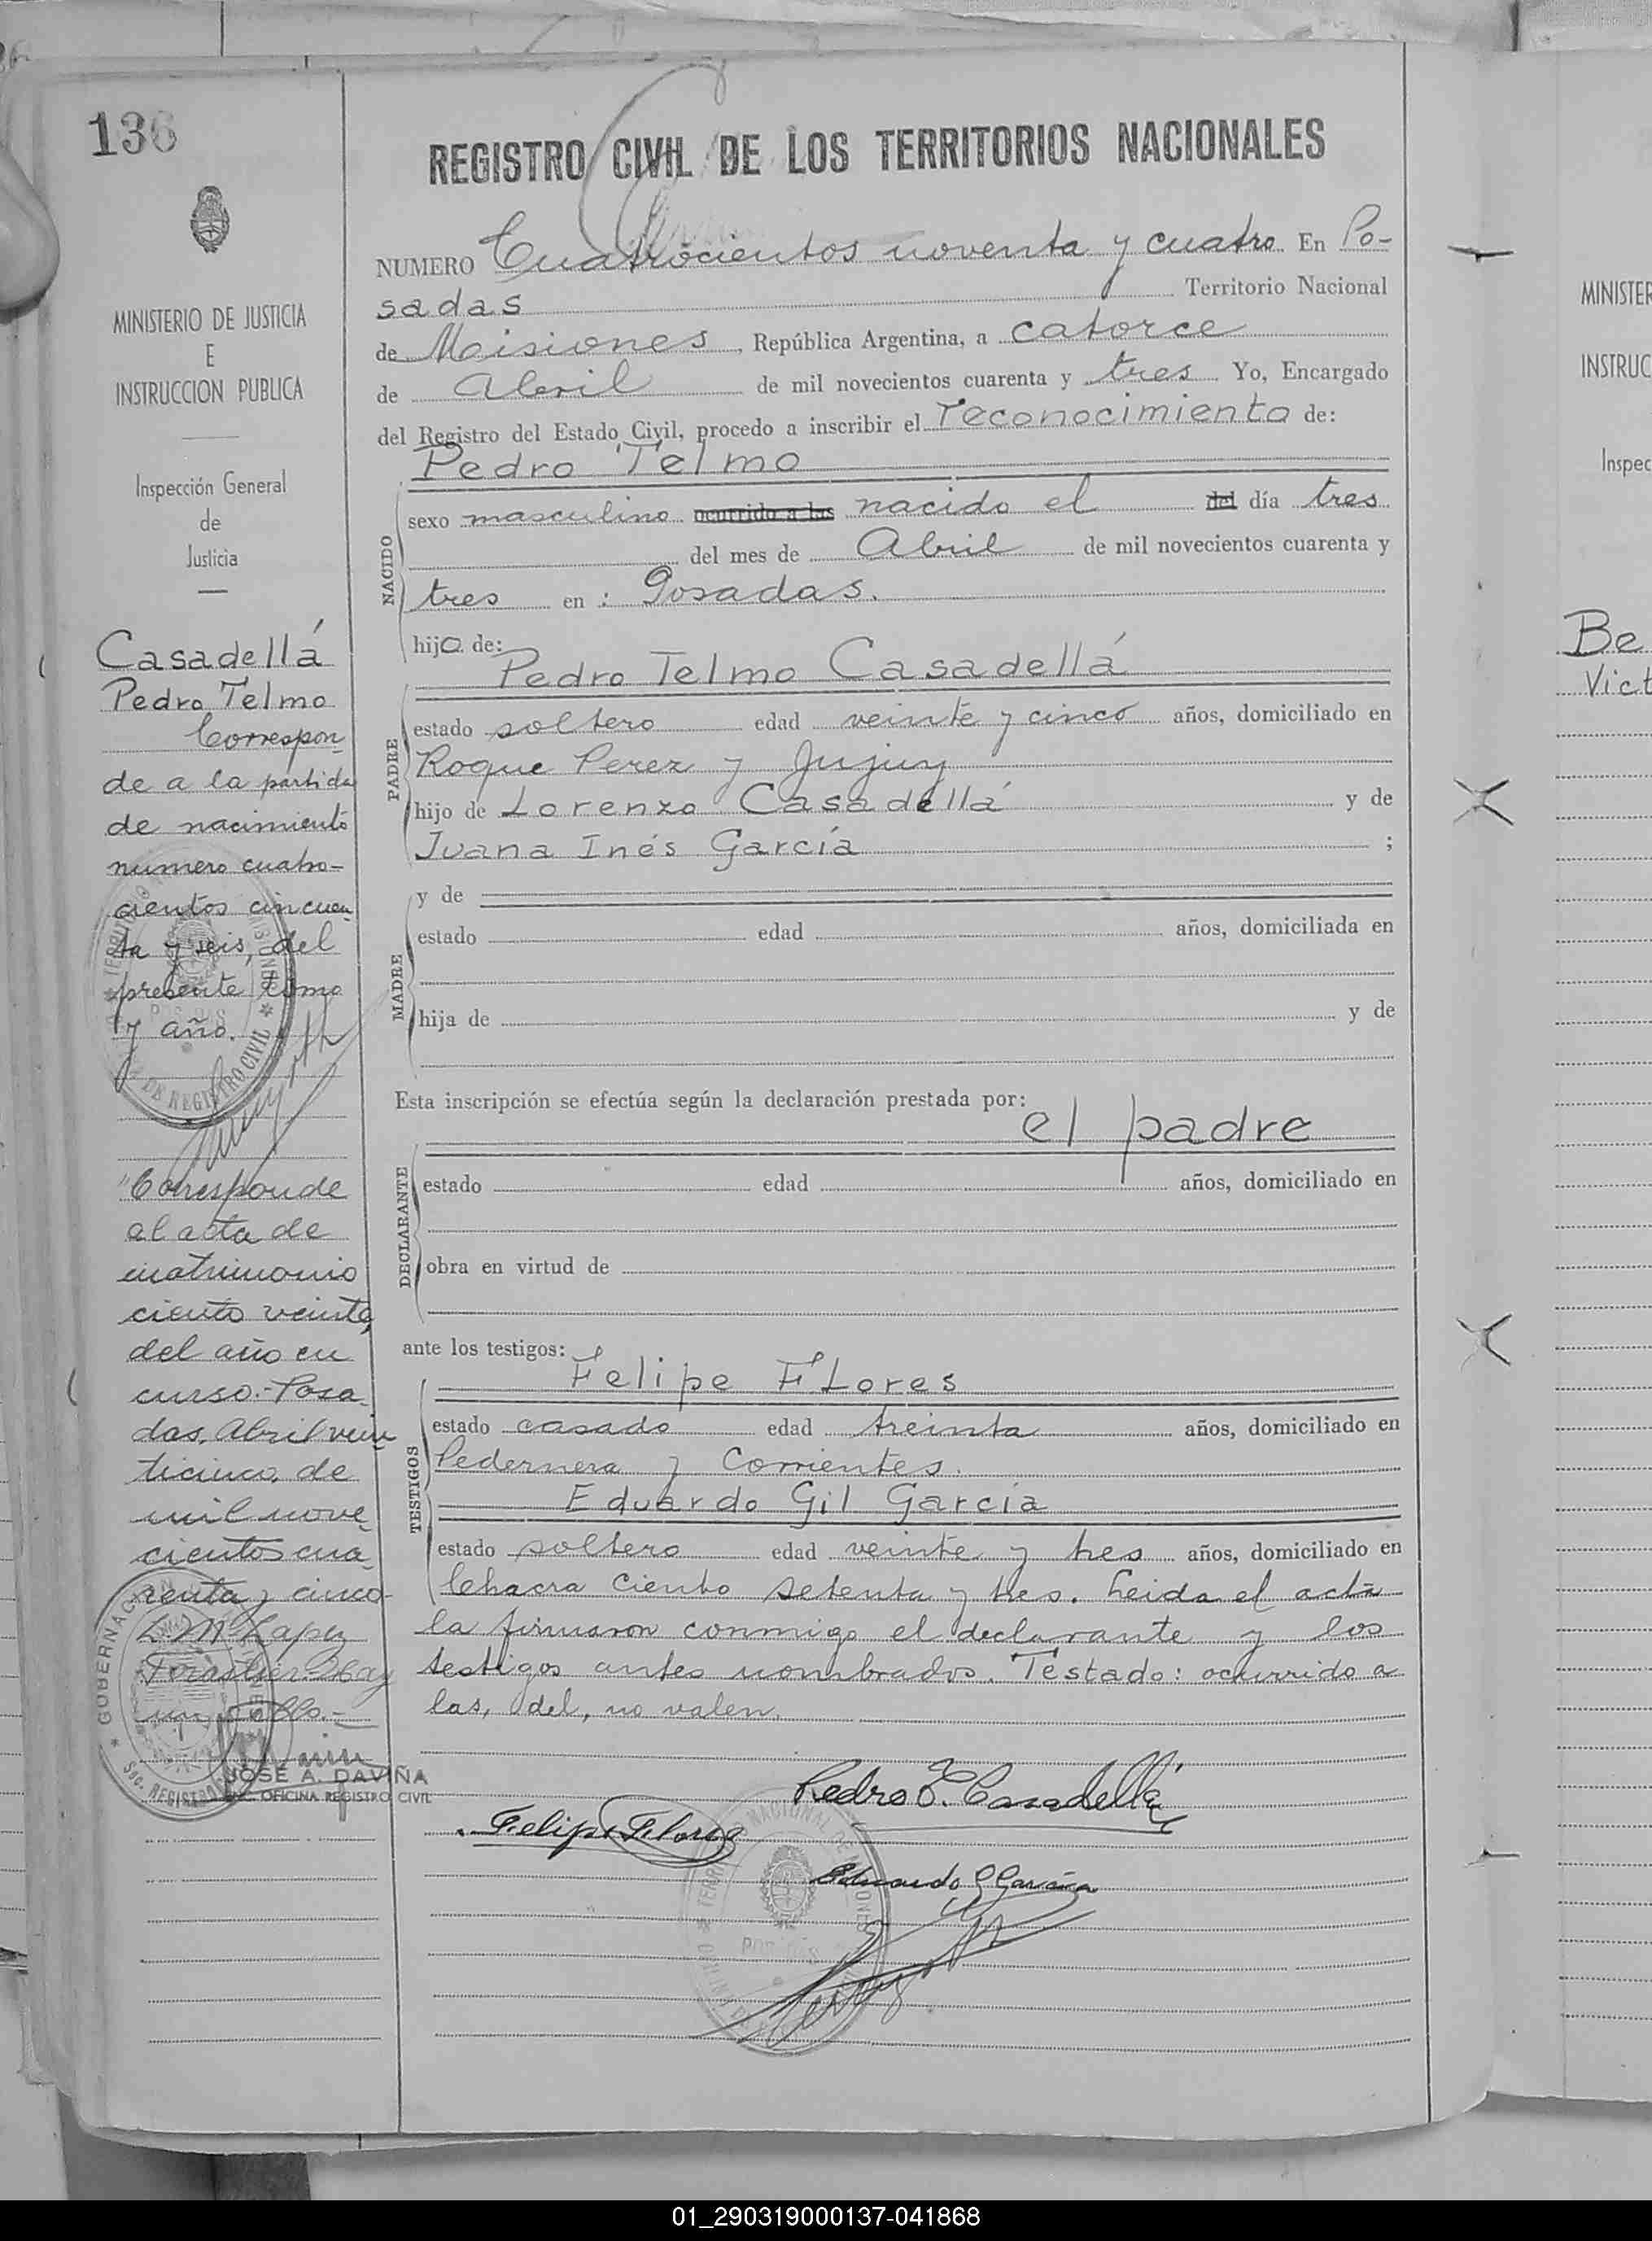 136
MINISTERIO DE JUSTICIA
E
INSTRUCCION PUBLICA
Inspección General
de
Justicia
Casadellá
Pedro Telmo
Correspon-
de a la partida
de nacimiento
numero cuatro-
cientos cincuen-
ta y seis, del
presente tomo
y año.
"Corresponde
al acta de
matrimonio
ciento veinte,
del año en
curso.- Posa
das, Abril vein
ticinco, de
mil nove
cientos cua
renta y cinco
Hay
un sello.-
JOSE A. DAVIÑA
OFICINA REGISTRO CIVIL
REGISTRO CIVIL DE LOS TERRITORIOS NACIONALES
NUMERO Cuatrocientos noventa y cuatro En Po-
sadas Territorio Nacional
de Misiones, República Argentina, a catorce
de Abril de mil novecientos cuarenta y tres Yo, Encargado
del Registro del Estado Civil, procedo a inscribir el reconocimiento de:
Pedro Telmo
NACIDO
sexo masculino ocurrido a las nacido el del día tres
del mes de Abril de mil novecientos cuarenta y
tres en : Posadas.
hijo de:
Pedro Telmo Casadellá
PADRE
estado soltero edad veinte y cinco años, domiciliado en
Roque Perez y Jujuy
hijo de Lorenzo Casadellá y de
Juana Inés García ;
y de
MADRE
estado edad años, domiciliada en
hija de y de
Esta inscripción se efectúa según la declaración prestada por:
el padre
DECLARANTE
estado edad años, domiciliado en
obra en virtud de
ante los testigos:
Felipe FLores
TESTIGOS
estado casado edad treinta años, domiciliado en
Pedernera y Corrientes.
Eduardo Gil García
estado soltero edad veinte y tres años, domiciliado en
Chacra ciento setenta y tres. Leida el acta
la firmaron conmigo el declarante y los
testigos antes nombrados. Testado: ocurrido a
las, del, no valen.
Pedro T. Casadellá
Felipe Flores
Eduardo G García
MINISTER
INSTRUC
Inspec
Be
Vict
01_290319000137-041868